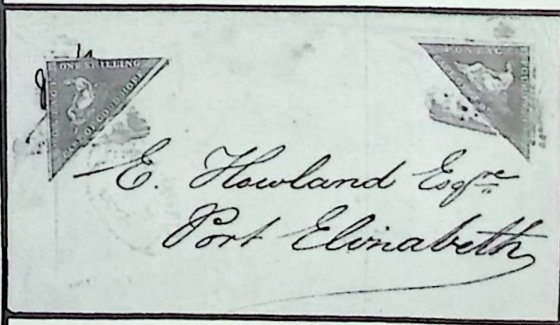 ONE SHILLING
CAPE OF GOOD HOPE
POSTAGE
E. Howland Esqre
Port Elizabeth